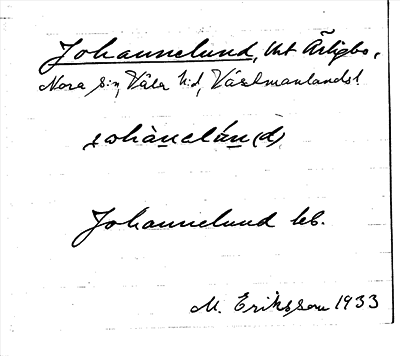 Johannelund, Ärligbo,
Nora sn, Våla hd, Västmanlands l
Johannelund leb.
M. Eriksson 1933